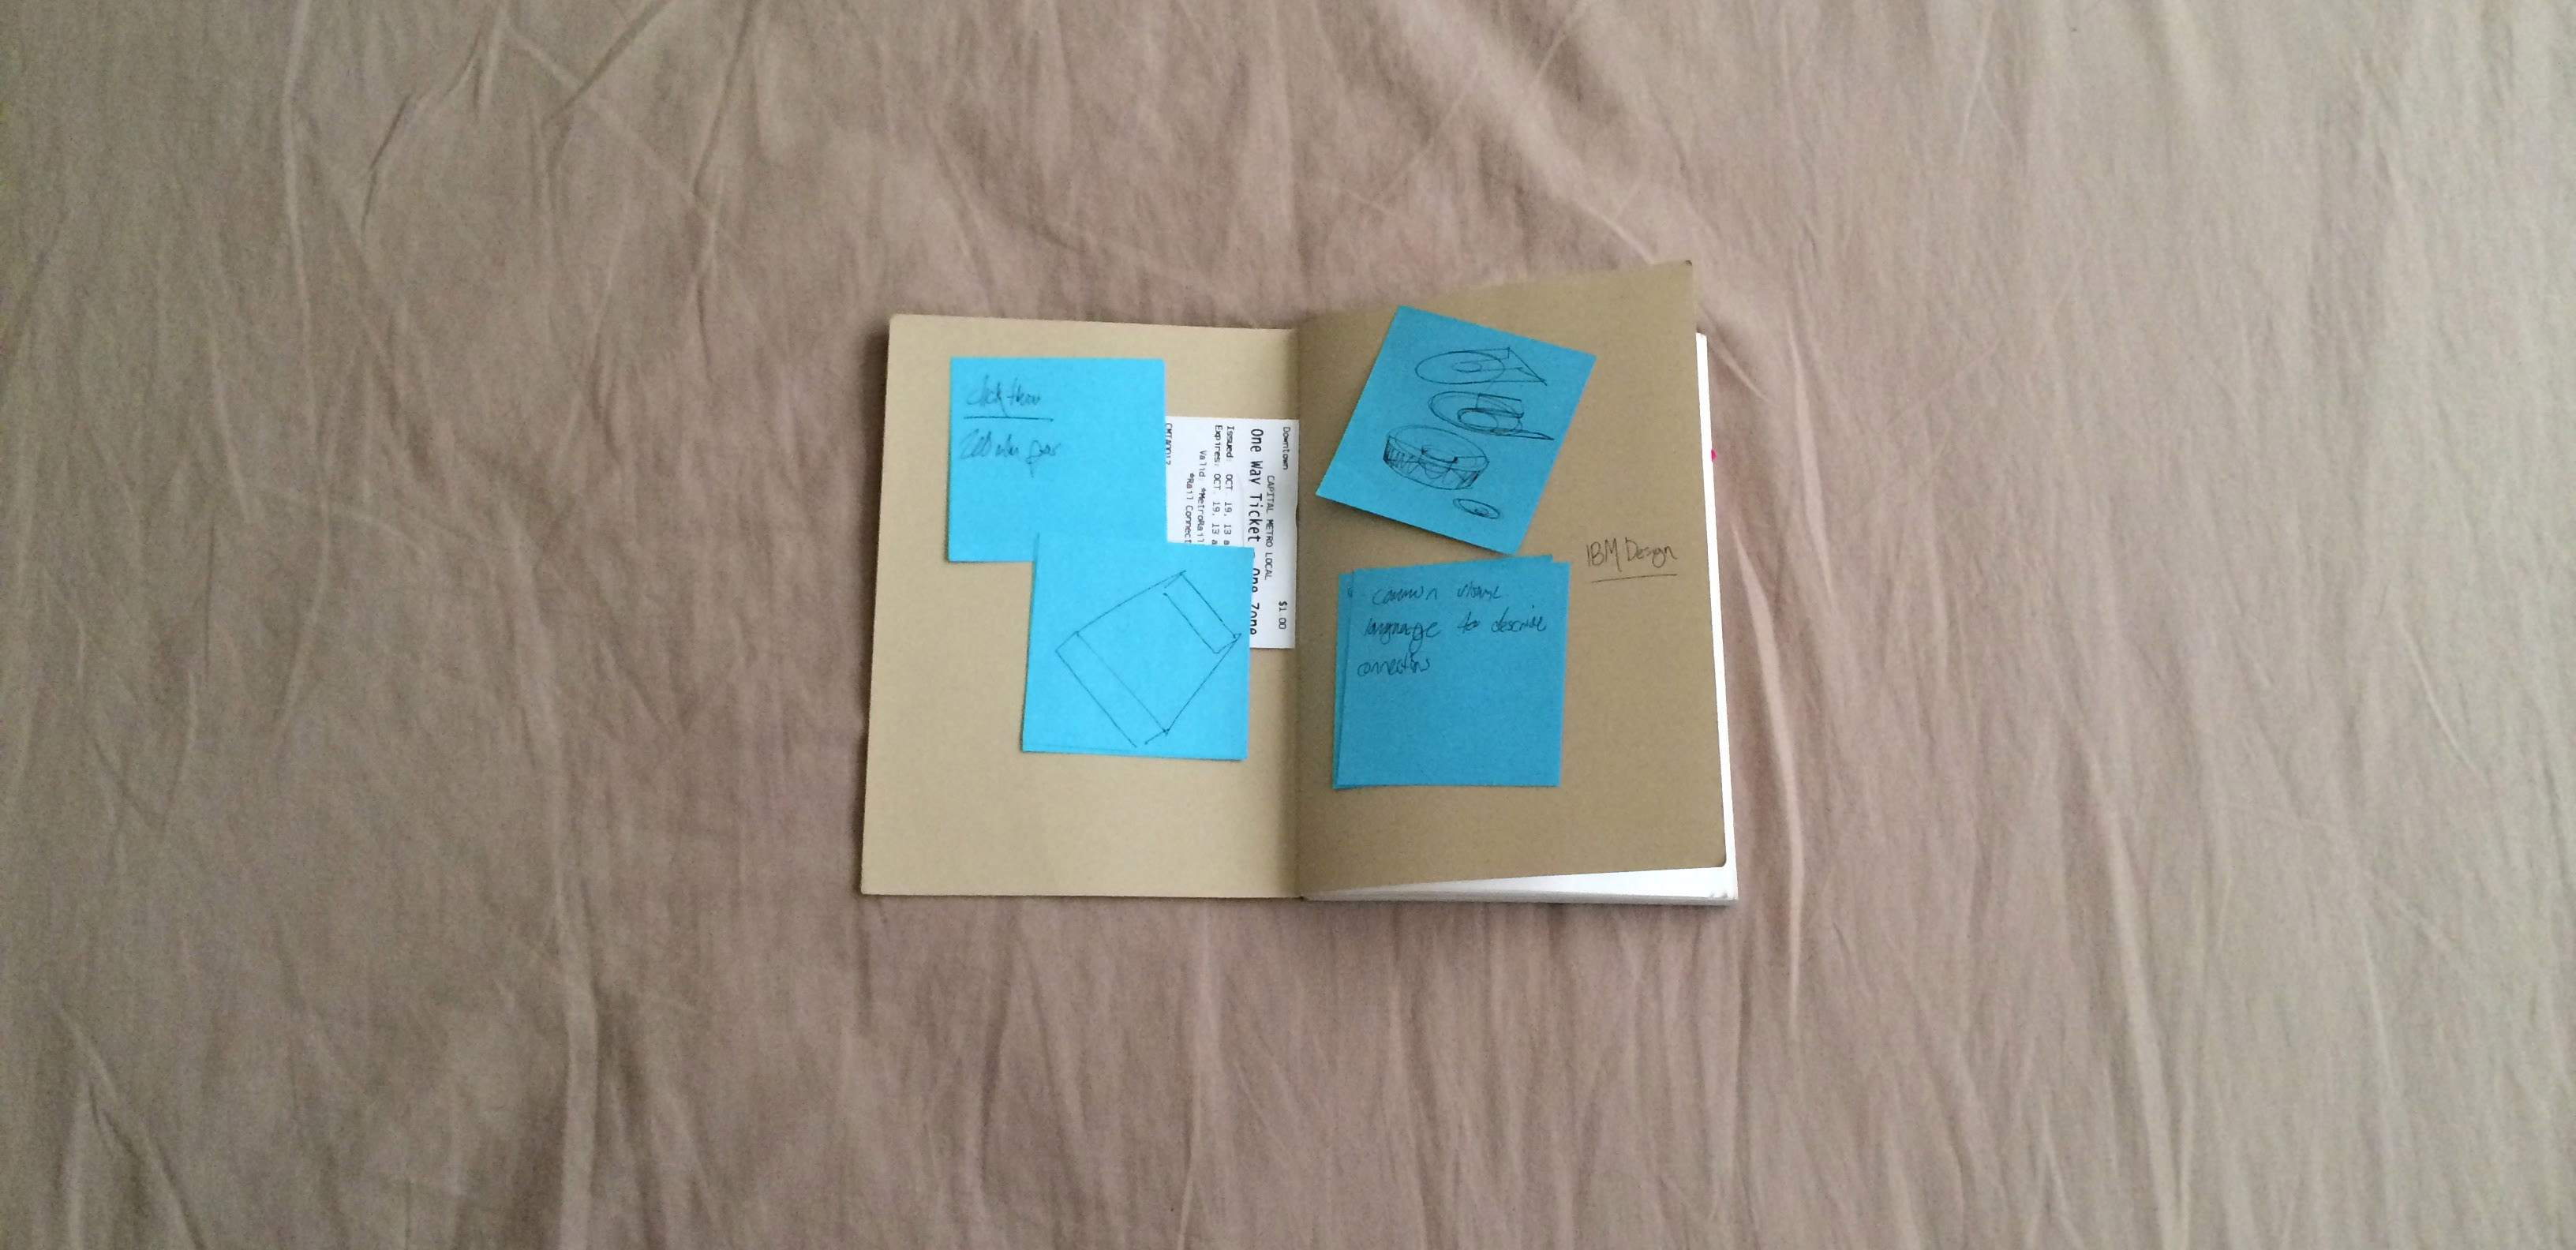 click thru
Downtown
CAPITAL METRO LOCAL
$1.00
One Way Ticket
One Zone
Issued: OCT 19, 13 a
Expires: OCT 19, 13 a
Valid: *MetroRail
*Rail Connect
IBM Design
common visual
language to describe
connections